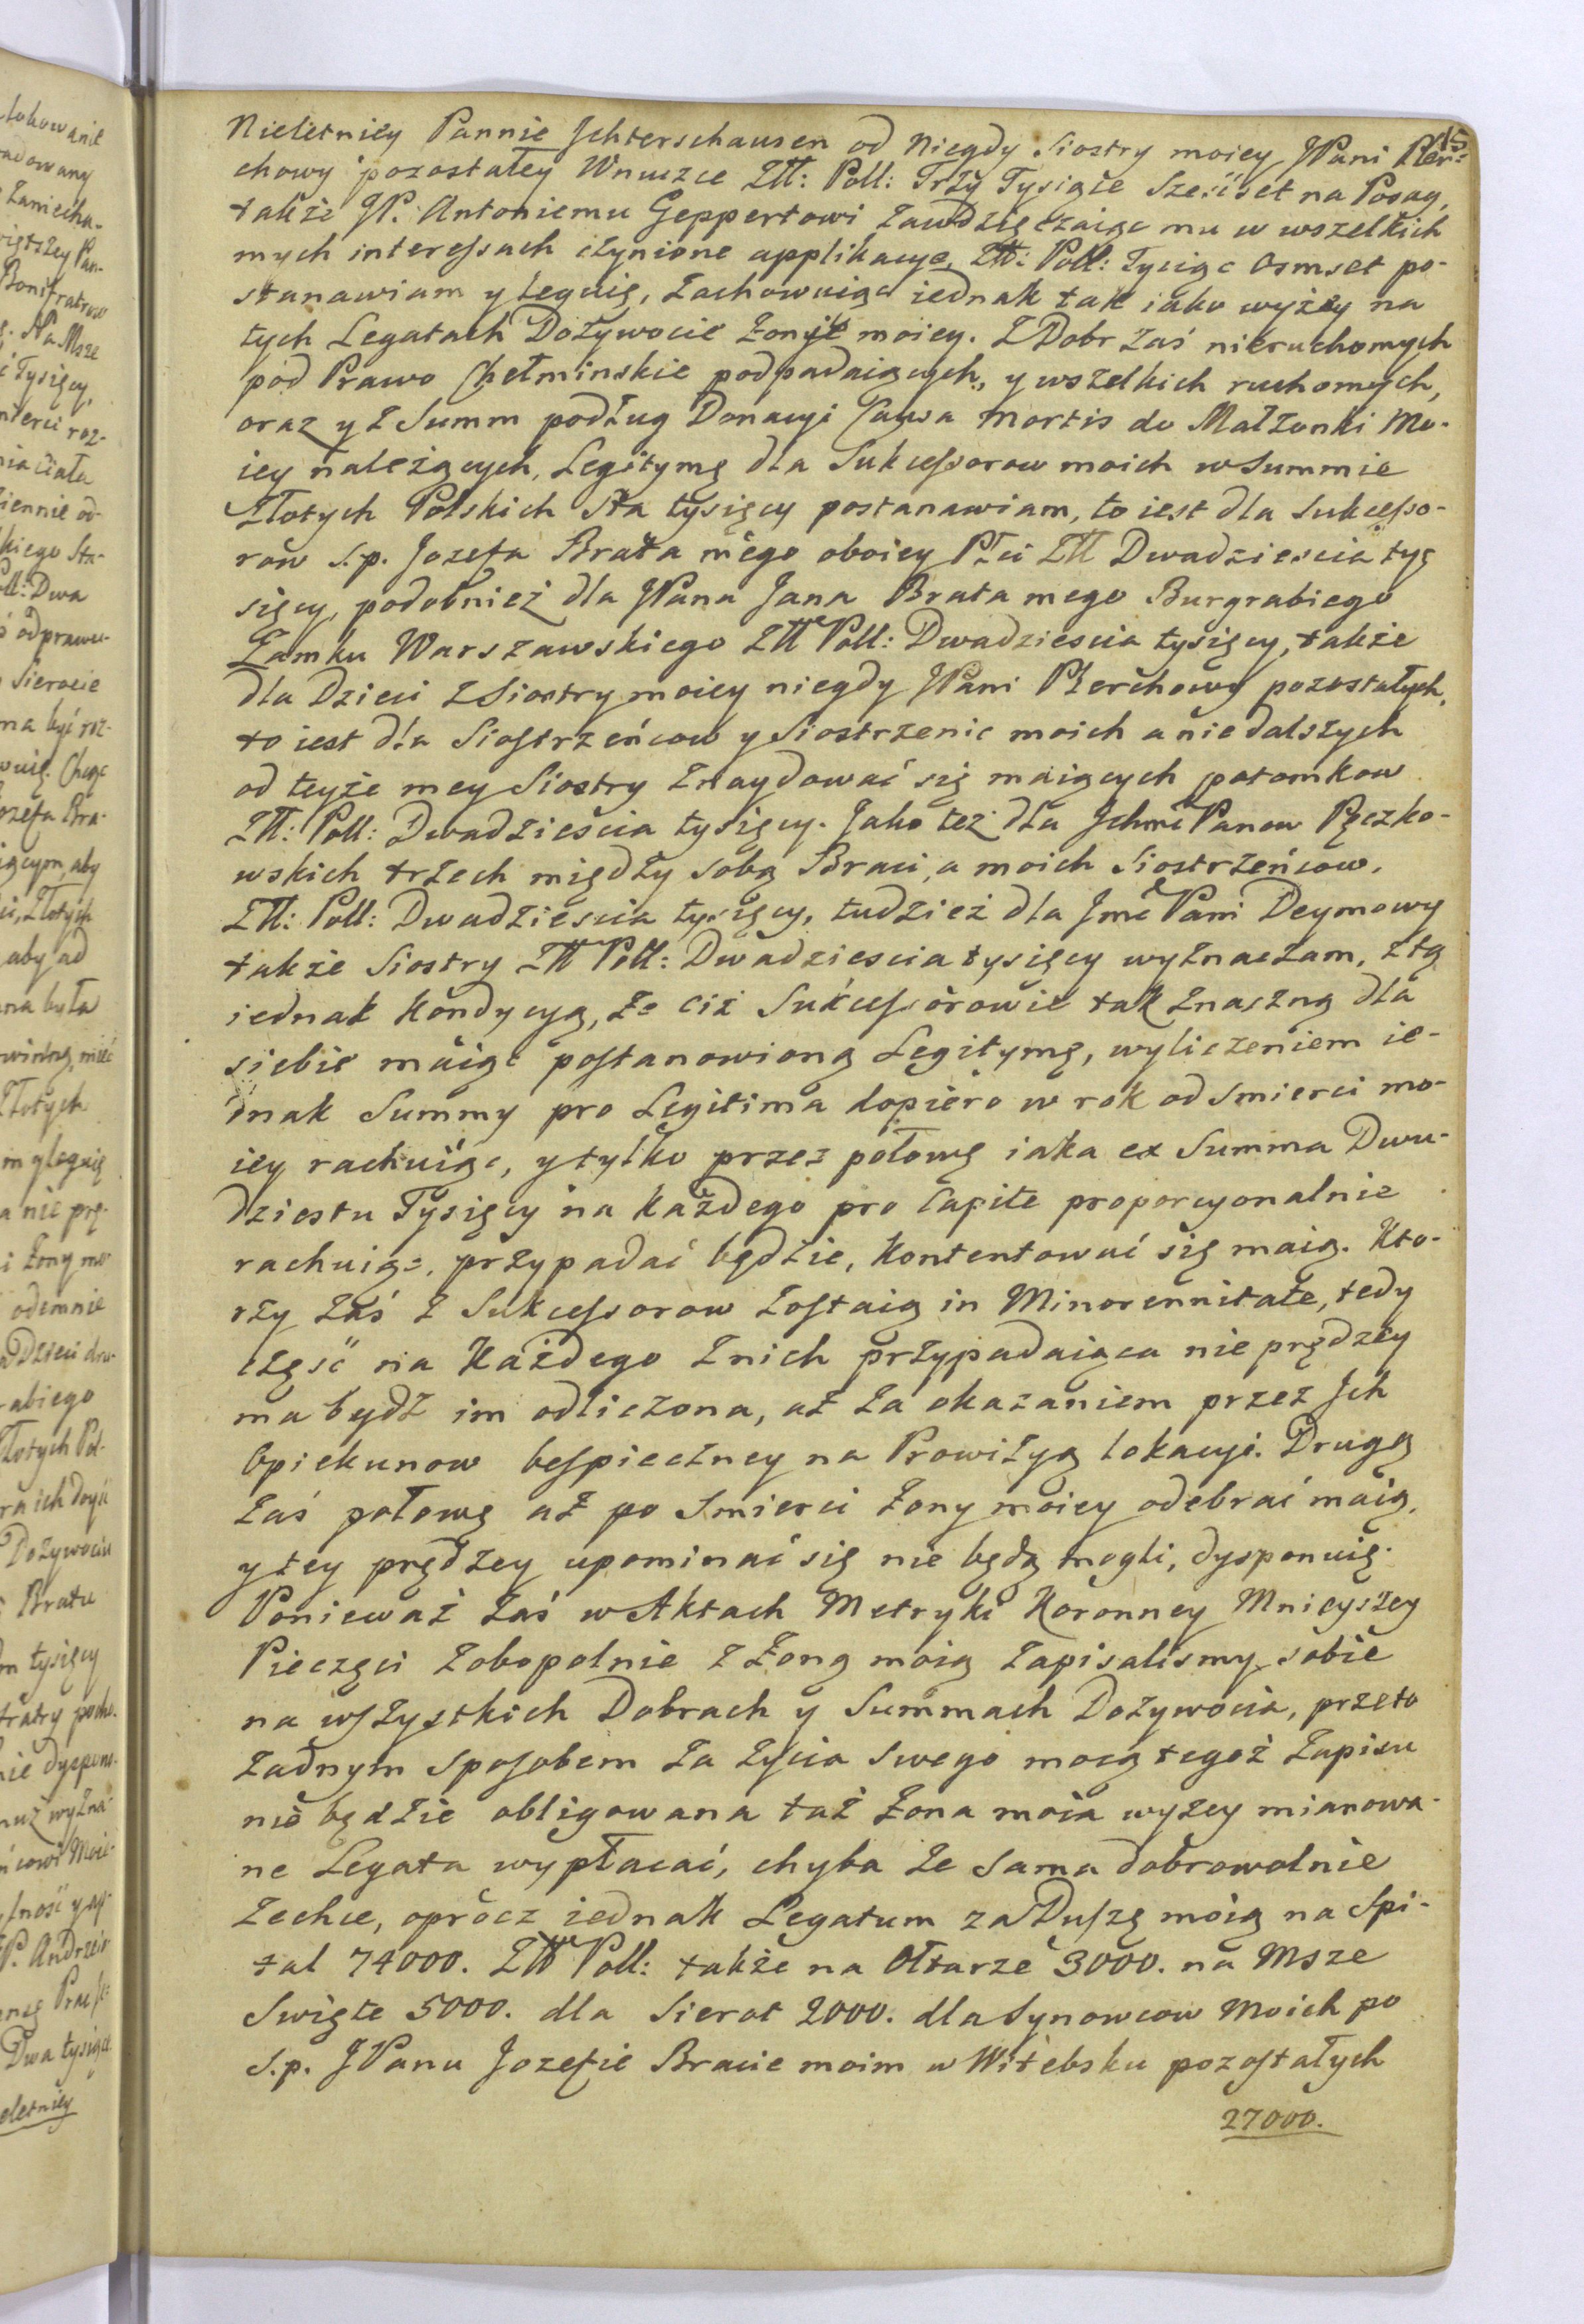 15
Nieletniey Pannie Ichterschausen od Niegdy Siostry moiey JPani Pler=
chowy pozostałey Wnuczce Złł: Poll: Trzy Tysiące Sześćset na Posag,
także JP. Antoniemu Geppertowi zawdzięczaiąc mu w wszelkich
mych interessach czynione applikacye, Złł: Poll: Tysiąc Osmset po-
stanawiam y leguię, zachowuiąc iednak tak iako wyżey na
tych Legatach Dożywocie Żony moiey. Z Dobr zaś nieruchomych
pod Prawo Chełminskie podpadaiących, y wszelkich ruchomych,
oraz y z Summ podług Donacyi Causa Mortis do Małżonki Mo-
iey należących, Legitymę dla Sukcessorow moich w Summie
Złotych Polskich Sta tysięcy postanawiam, to iest dla Sukcesso-
row S.p. Jozefa Brata mego oboiey Płci Złł Dwadziescia tyę
sięcy, podobnież dla JPana Jana Brata mego Burgrabiego
Zamku Warszawskiego Złł Poll: Dwadziescia tysięcy, także
dla Dzieci z Siostry moiey niegdy JPani Plerchowy pozostałych,
to iest dla Siostrzeńcow y Siostrzenic moich a nie dalszych
od teyże mey Siostry znaydować się maiących potomkow
Złł: Poll: Dwadzieścia tysięcy. Jako też dla Ichmć Panow Pęczko-
wskich trzech między sobą Braci, a moich Siostrzeńcow,
Złł: Poll: Dwadziescia tysięcy, tudzież dla Jmć Pani Deymowy
także Siostry Złł Poll: Dwadziescia tysięcy wyznaczam, z tą
iednak Kondycyą, że ciż Sukcessorowie tak znaczną dla
siebie maiąc postanowioną Legitymę, wyliczeniem ie-
dnak Summy pro Legitima dopiero w rok od Smierci mo-
iey rachuiąc, y tylko przez połowę iaka ex Summa Dwu-
dziestu Tysięcy na każdego pro Capite proporcyonalnie
rachuiąc, przypadać będzie, kontentować się maią. Kto-
rzy zaś z Sukcessorow zostaią in Minorennitate, tedy
częsć na Każdego z nich przypadaiąca nie prędzey
ma bydź im odliczona, aż za okazaniem przez Ich
Opiekunow bespieczney na Prowizyą lokacyi. Drugą
zaś połowę aż po Smierci Żony moiey odebrać maią,
y tey prędzey upominać się nie będą mogli, dysponuię.
Ponieważ zaś w Aktach Metryki Koronney Mnieyszey
Pieczęci zobopolnie z Żoną moią zapisalismy sobie
na wszystkich Dobrach y Summach Dożywocia, przeto
żadnym sposobem za życia swego mocą tegoż zapisu
nie będzie obligowana taż Żona moia wyżey mianowa-
ne Legata wypłacać, chyba że sama dobrowolnie
zechce, oprocz iednak Legatum za Duszę moią na Spi-
tal 74000. Złł Poll: także na Ołtarze 3000. na Msze
Swięte 5000. dla Sierot 2000. dla Synowcow Moich po
S.p. JPanu Jozefie Bracie moim w Witebsku pozostałych
27000.